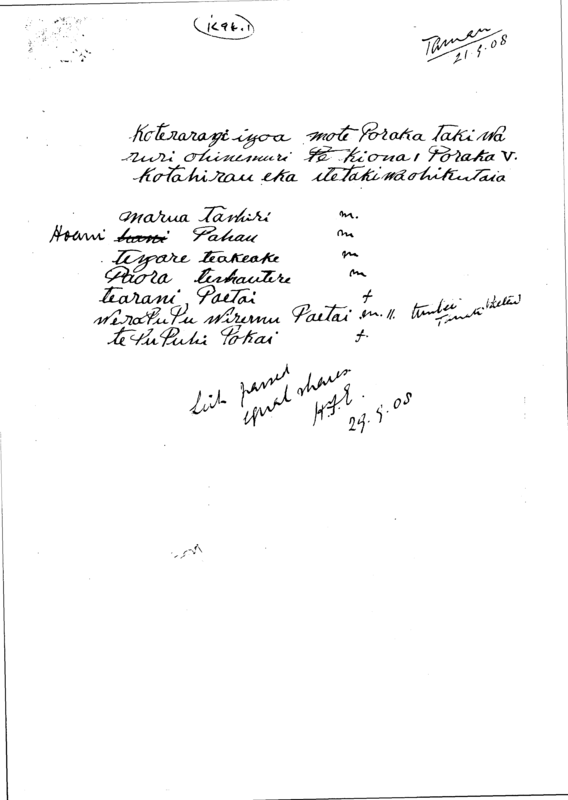 K 9 t. 1
21.5.08
Koterarangi ingoa mote Poraka takiwa
ruri ohinemuri Te Kiona 1 Poraka V.
Kotahirau eka itetakiwaohikutaia
marua Tawhiri m.
Hoani Pahau m
tengare teakeake m
Paora teshautere m
tearani Paetai f
WeraPuPu Wiremu Paetai m. 11.
te PuPuhi Pokai f.
List passed
equal shares
29.5.08